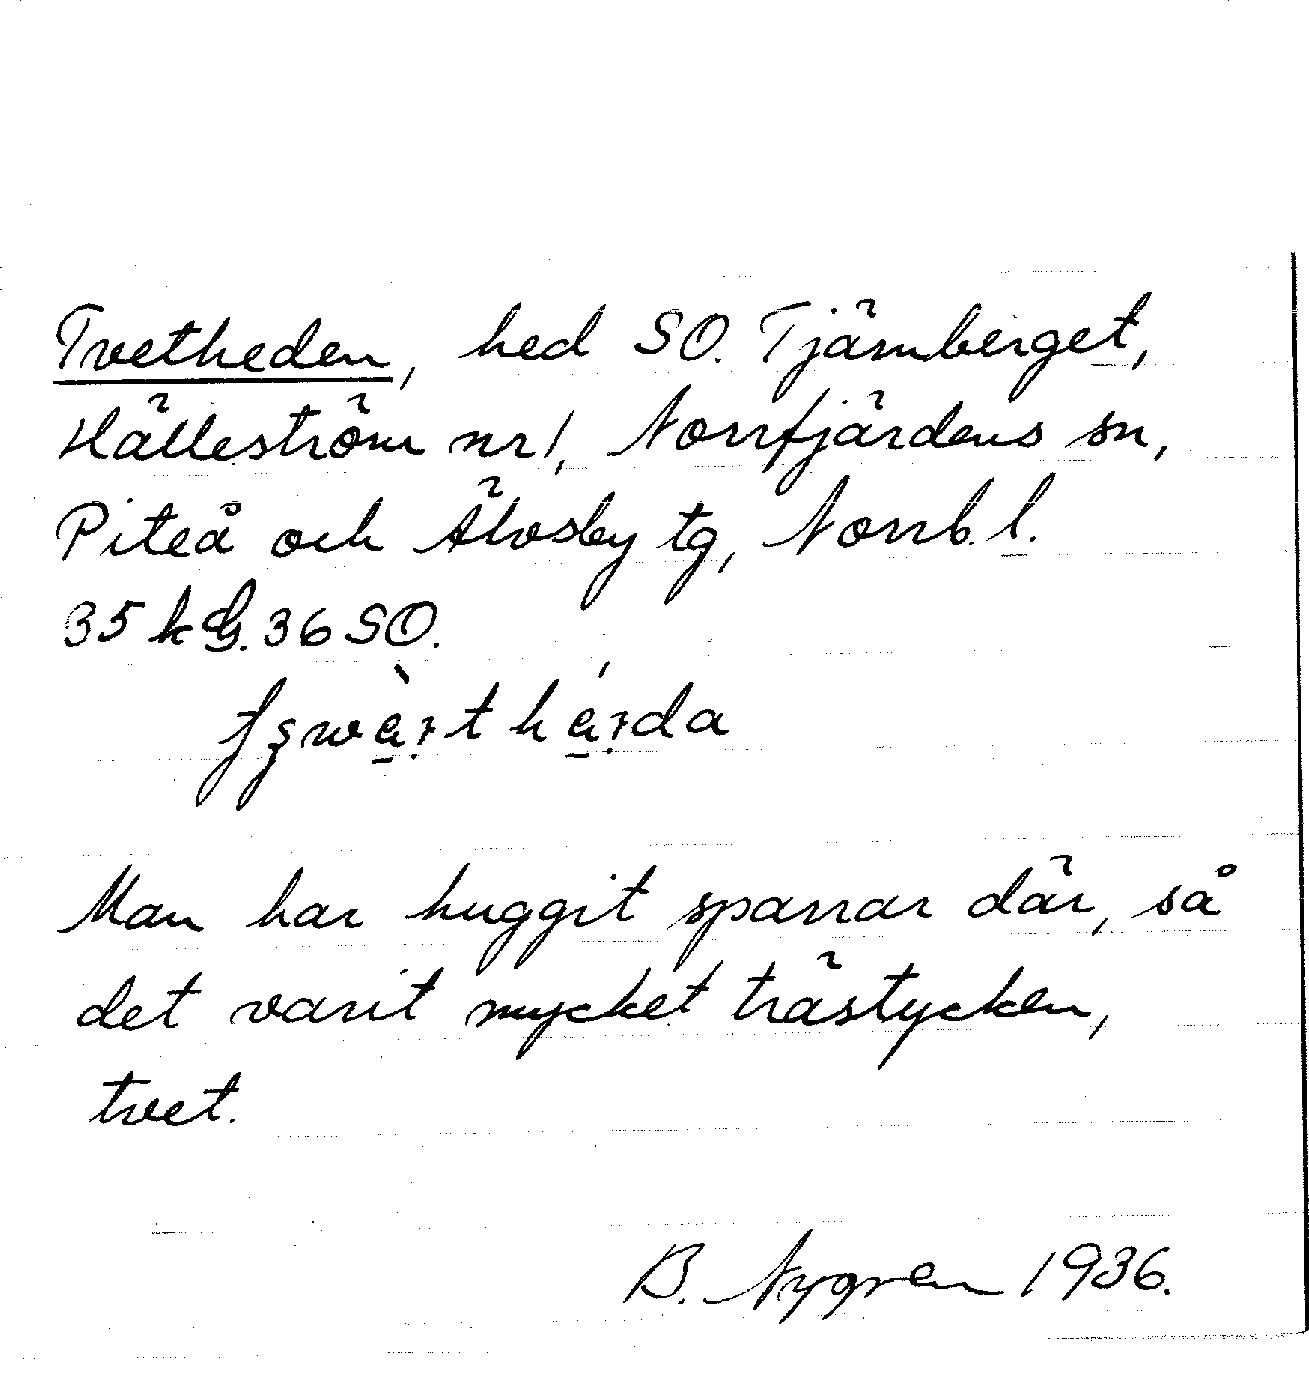 Tvetheden, hed SO. Tjärnberget,
Hälleström nr 1, Norrfjärdens sn,
Piteå och Älvsby tg, Norrb. l.
35 k G. 36 SO.
Man har huggit sparrar där, så
det varit mycket trästycken,
tvet.
B. Nygren 1936.